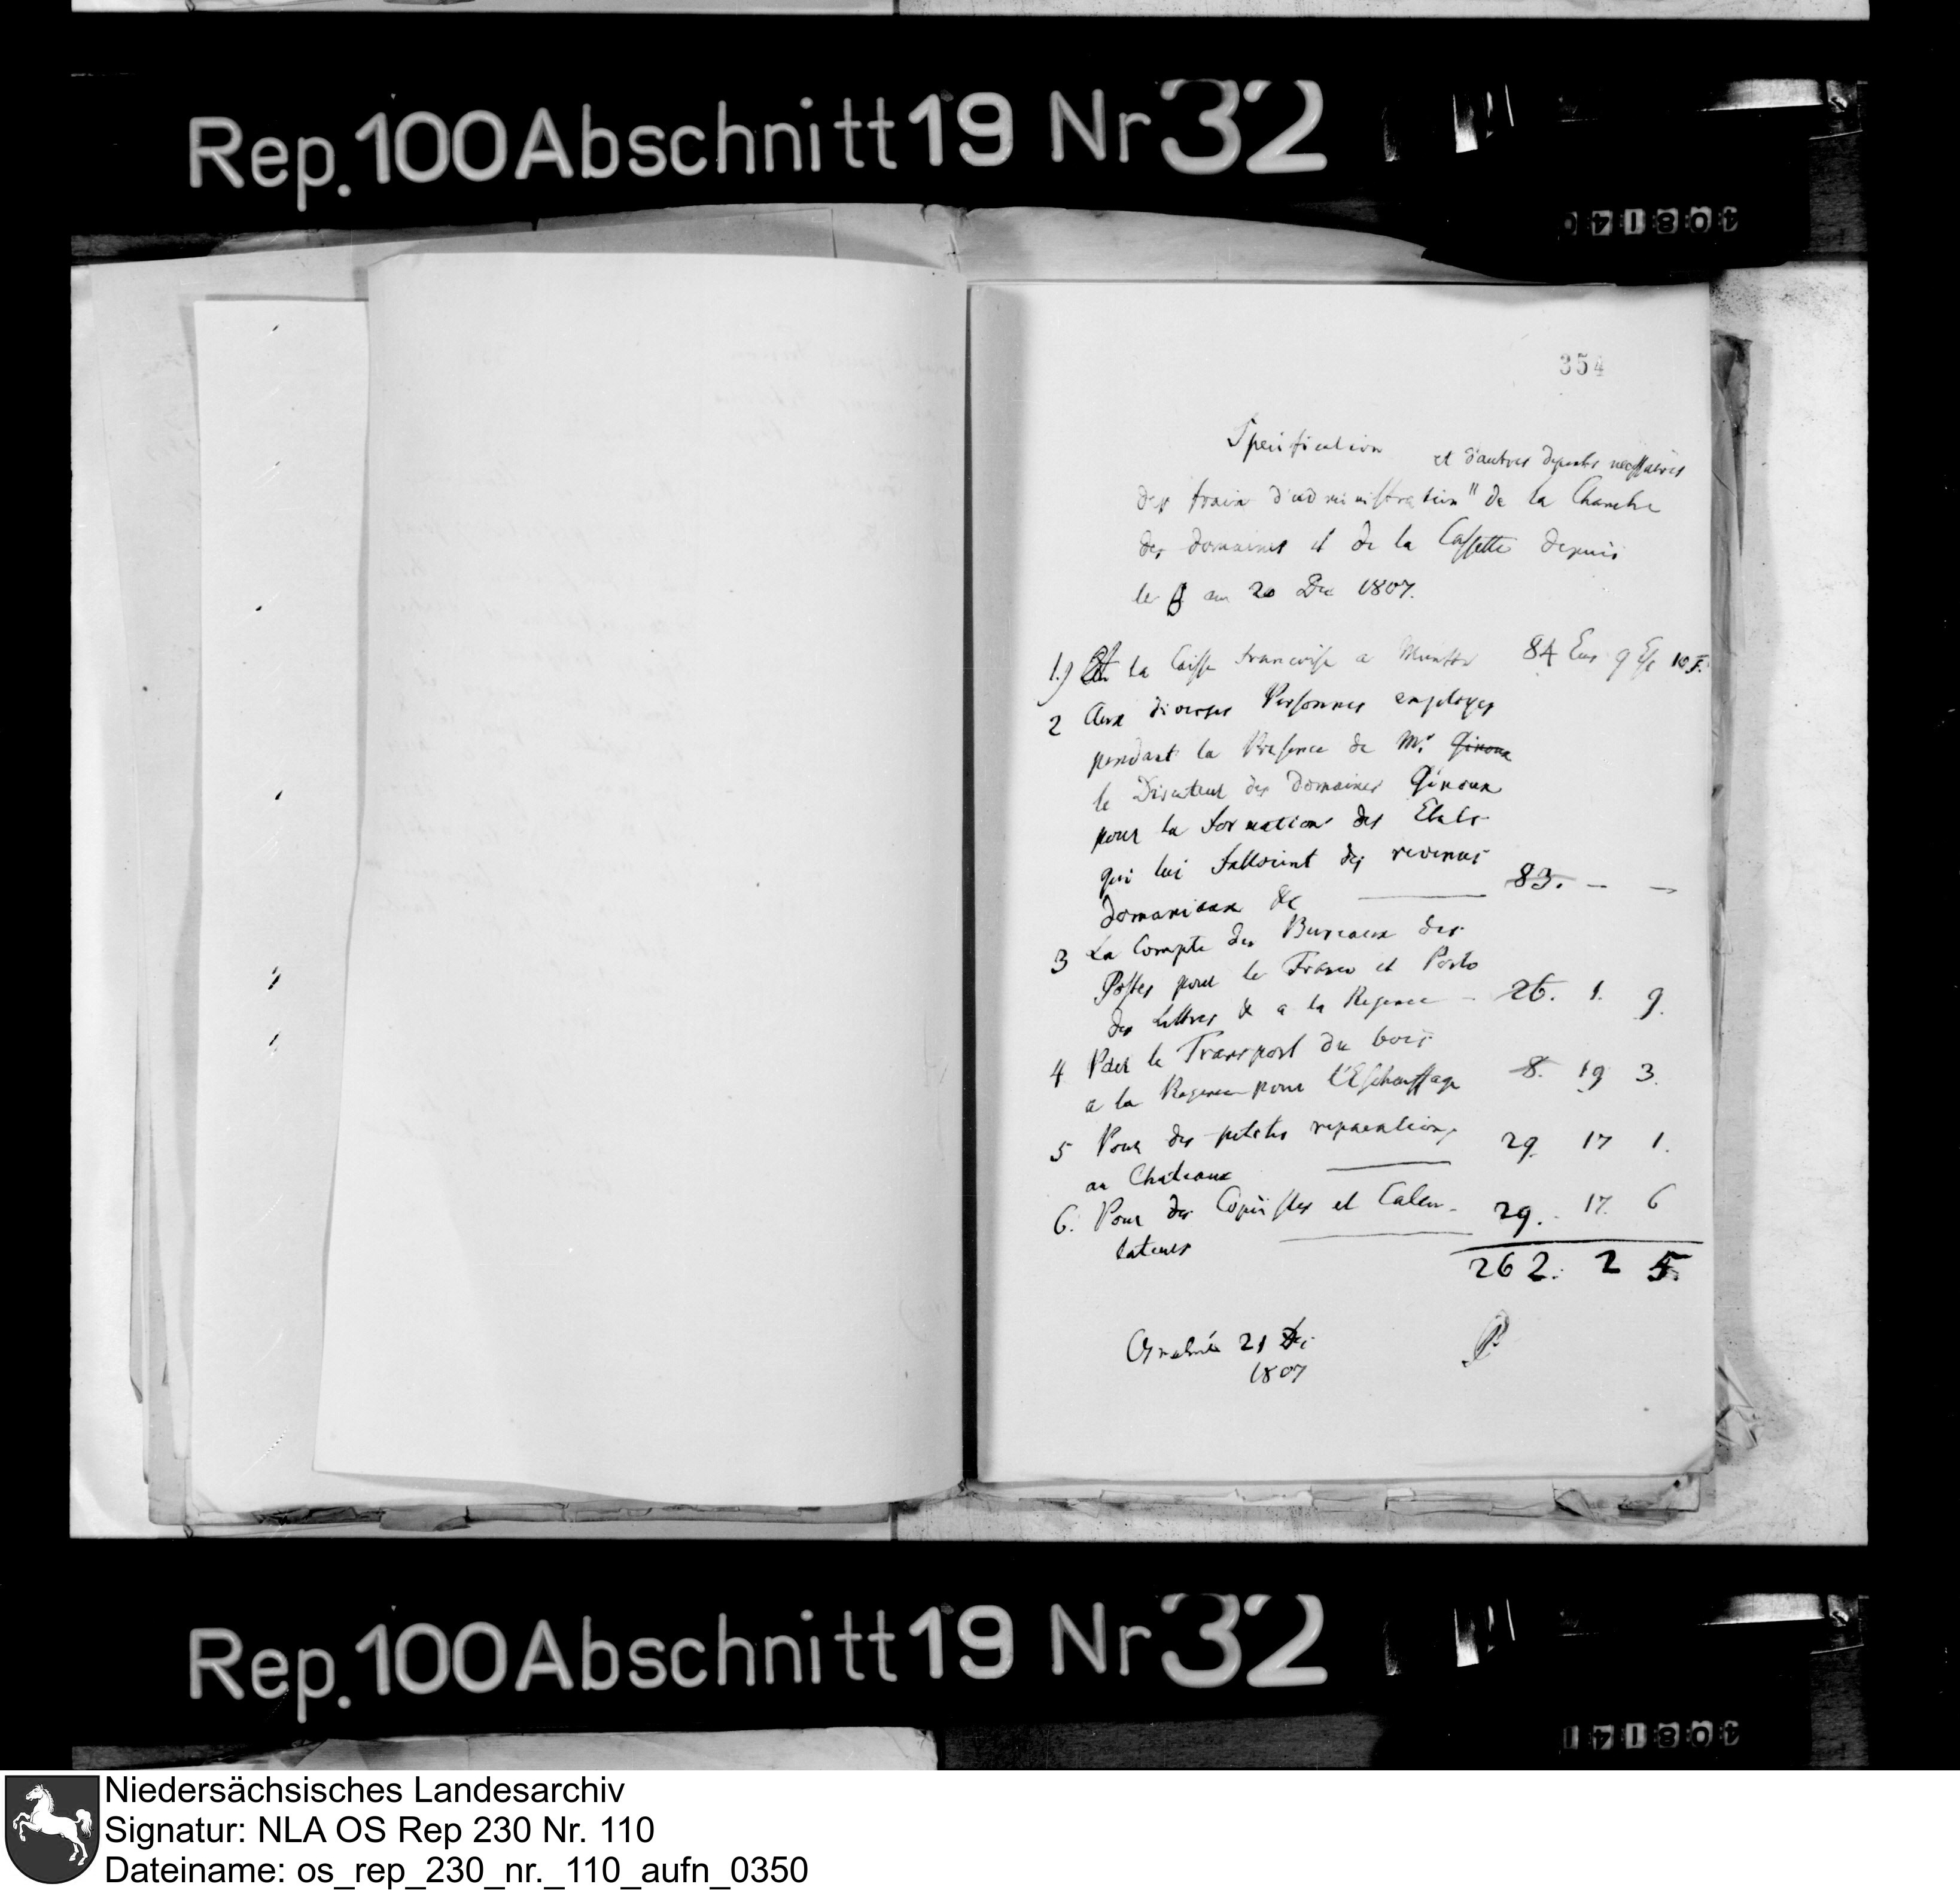 Rep. 100 Abschnitt 19 Nr 32
408140
354
Specification
et d'autres depenses necessaires
des fraix d'administration " de la Chambre
des domaines et de la Cassette depuis
le au 20 Dec 1807.
1.) la Caisse francoise a Munster 84 Ecus 9 Es 10 F.
2 Aux diverses Personnes employes
pendant la Presence de Mr. Giroux
le Directeur des Domaines Giroux
pour la formation des Etats
qui lui falloient des revenus
domaniaux &c 83. — —
3 La Compte des Bureaux des
Postes pour le Franco et Porto
des lettres & a la Regence - 26. 1. 9.
4 Pour le Transport du bois
a la Regence pour l'Eschauffage 8. 19 3.
5 Pour des petites reparations
au Chateaux 29. 17 1.
6. Pour des Copiistes et Calcu-
lateurs 29. 17. 6
262. 2 5.
Osnabruck 21 Dec
1807
Rep. 100 Abschnitt 19 Nr 32
408141
Niedersächsisches Landesarchiv
Signatur: NLA OS Rep 230 Nr. 110
Dateiname: os_rep_230_nr._110_aufn_0350